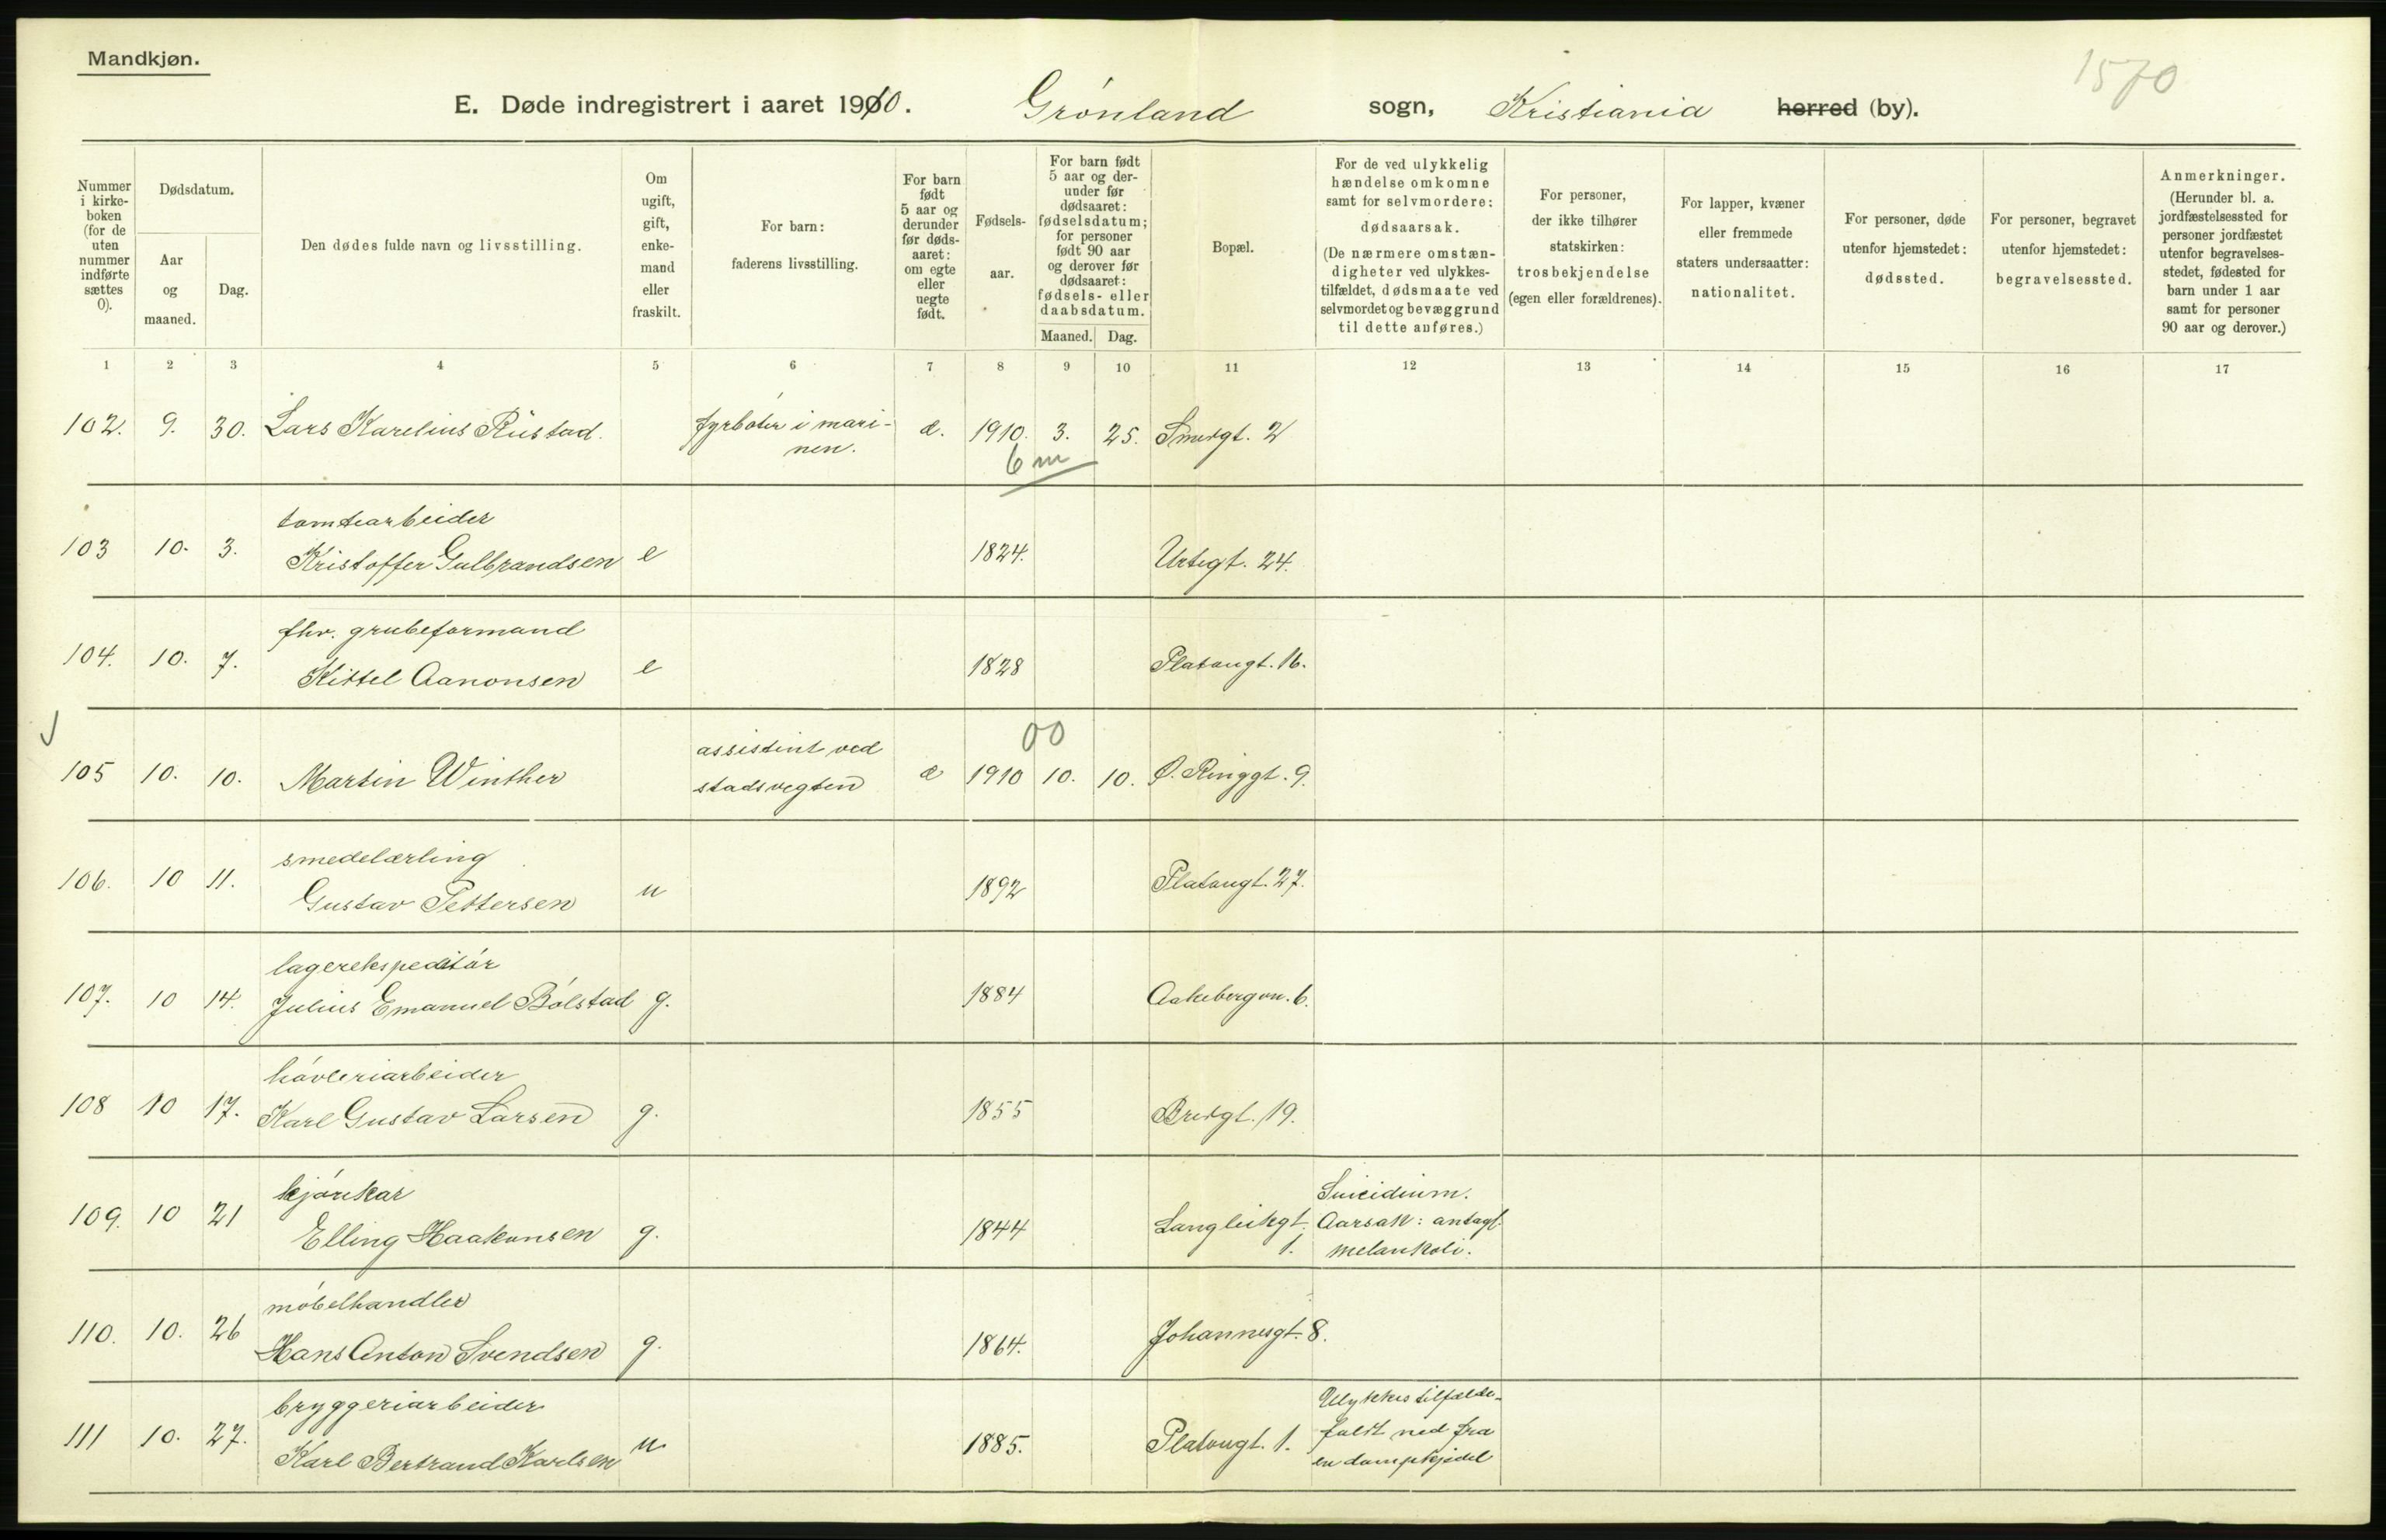 Mandkjøn.
1570
E. Døde indregistrert i aaret 1910. Grønland sogn, Kristiania herred (by).
Nummer i kirke- boken (for de uten nummer indførte sættes 0).
Dødsdatum.
Aar og maaned.
Dag.
Den dødes fulde navn og livsstilling.
Om ugift, gift, enke- mand eller fraskilt.
For barn: faderens livsstilling.
For barn født 5 aar og derunder før døds- aaret: om egte eller uegte født.
Fødsels- aar.
For barn født 5 aar og der- under før dødsaaret: fødselsdatum; for personer født 90 aar og derover før dødsaaret: fødsels- eller daabsdatum.
Maaned. Dag.
Bopæl.
For de ved ulykkelig hændelse omkomne samt for selvmordere: dødsaarsak. (De nærmere omstæn- digheter ved ulykkes- tilfældet, dødsmaate ved selvmordet og bevæggrund til dette anføres.)
For personer, der ikke tilhører statskirken: trosbekjendelse (egen eller forældrenes).
For lapper, kvæner eller fremmede staters undersaatter: nationalitet.
For personer, døde utenfor hjemstedet: dødssted.
For personer, begravet utenfor hjemstedet: begravelsessted.
Anmerkninger. (Herunder bl. a. jordfæstelsessted for personer jordfæstet utenfor begravelses- stedet, fødested for barn under 1 aar samt for personer 90 aar og derover.)
1 2 3 4 5 6 7 8 9 10 11 12 13 14 15 16 17
102. 9. 30. Lars Karelius Rustad. fyrbøter i mari- æ. 1910. 3. 25. Smedgt. 2
nen.
6 m
tomtearbeider
103 10. 3. Kristoffer Gulbrandsen e 1824. Urtegt. 24.
fhv. grubeformand
104. 10. 7. Kittel Aanonsen e 1828 Platougt. 16.
assistent ved 00
105 10. 10. Martin Winther stadsvegten æ 1910 10. 10. Ø. Ringgt. 9.
smedelærling
106. 10 11. Gustav Pettersen u 1892 Platougt. 27.
lagerekspeditør
107. 10 14. Julius Emanuel Bølstad g. 1884 Aakebergvn. 6.
høvleriarbeider
108 10 17. Karl Gustav Larsen g. 1855 Bredgt. 19.
kjørekar Suicidium.
109. 10 21 Elling Haakonsen g. 1844 Langleikgt. Aarsak: antagl.
1. melankoli.
møbelhandler
110. 10. 26 Hans Anton Svendsen g. 1864. Johannesgt. 8.
bryggeriarbeider Ulykkestilfælde-
111 10. 27. Karl Bertrand Karlsen u 1885. Platougt. 1. faldt ned fra
en dampkjedel